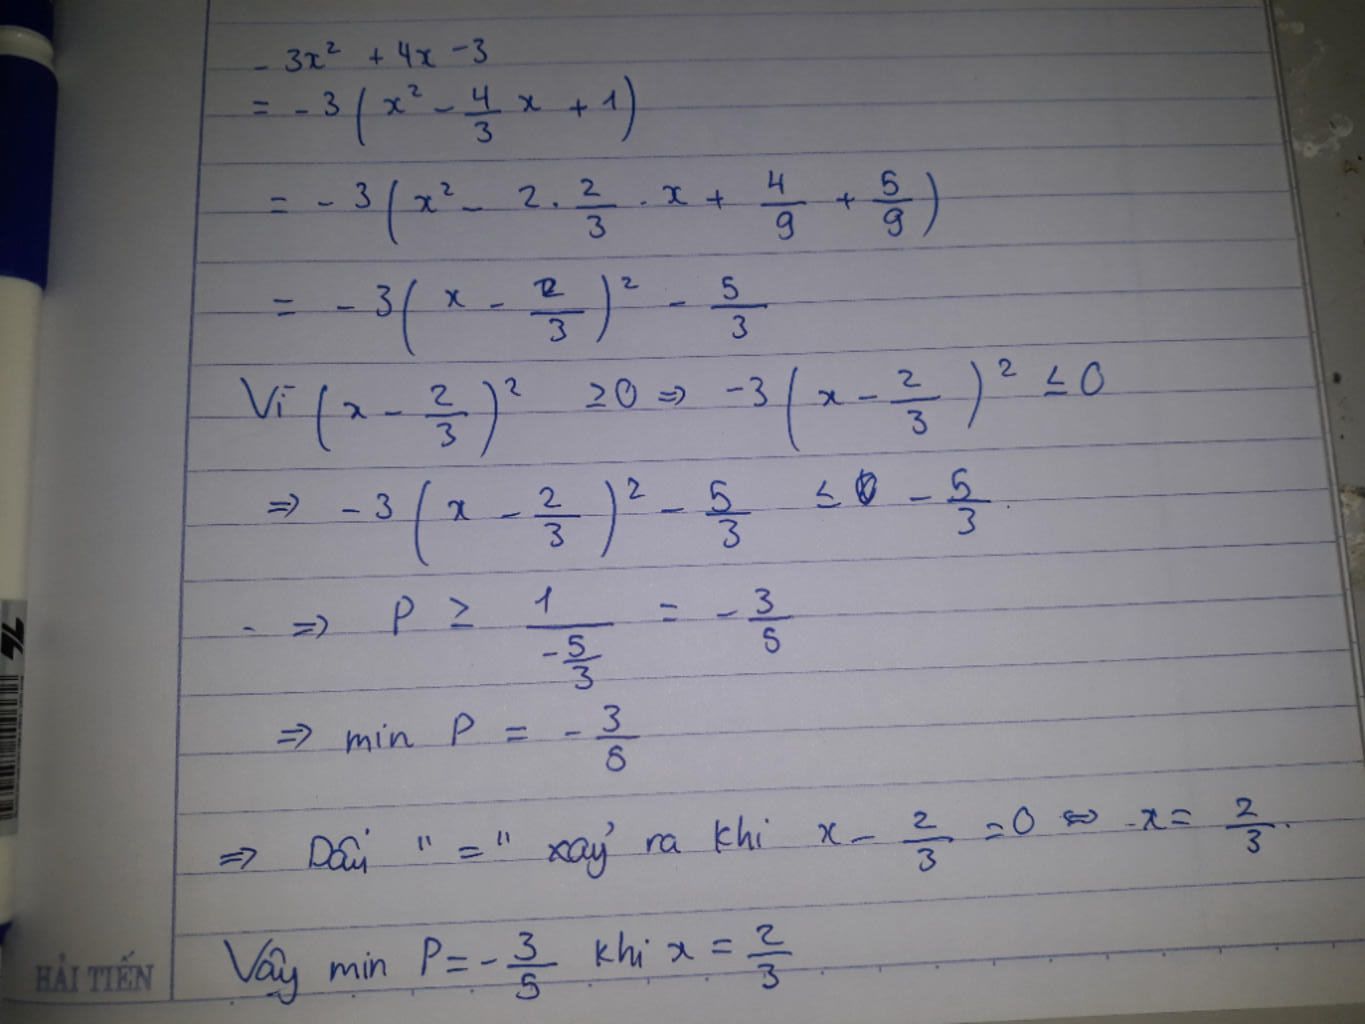 - 3x² + 4x - 3
= - 3 ( x² - 4/3 x + 1 )
= - 3 ( x² - 2 . 2/3 . x + 4/9 + 5/9 )
= - 3 ( x - 2/3 )² - 5/3
Vì ( x - 2/3 )² ≥ 0 => - 3 ( x - 2/3 )² ≤ 0
=> - 3 ( x - 2/3 )² - 5/3 ≤ 0 - 5/3 .
- => P ≥ 1/(-5/3) = - 3/5
=> min P = - 3/5
=> Dấu " = " xảy ra khi x - 2/3 = 0 <=> x = 2/3 .
Vậy min P = - 3/5 khi x = 2/3
HẢI TIẾN